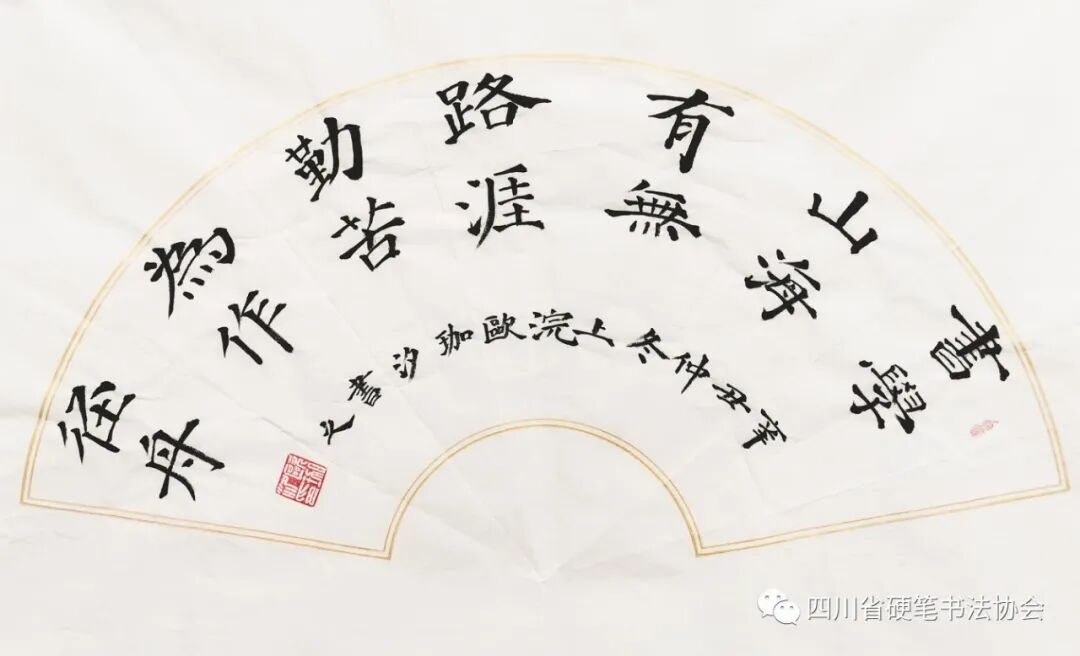 書山有路勤為徑
學海無涯苦作舟
辛丑仲冬上浣歐珈汐書之
四川省硬笔书法协会